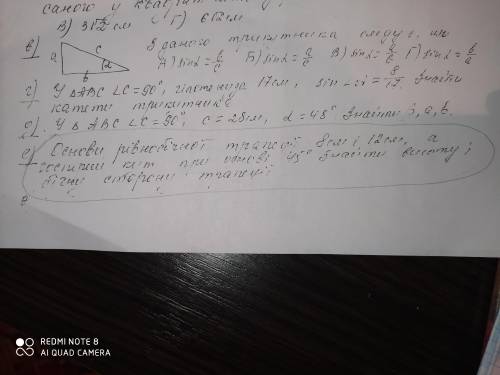 саного у квадрат
В) 3√2 см Г) 6√2 см
в) a c b α З даного трикутника слідує, що
А) sinα = b/c Б) sinα = a/c В) sinα = Г) sinα = b/a
г) У ΔABC ∠C=90°, гіпотенуза 17см, sin = 8/17. Знайти
катети трикутника
У ΔABC ∠C=90°, c=28см, α=48° Знайти a, b.
е) Основи рівнобічної трапеції 8см і 12см, а
гострий кут при основі 45° Знайти висоту і
бічні сторони трапеції
REDMI NOTE 8
AI QUAD CAMERA